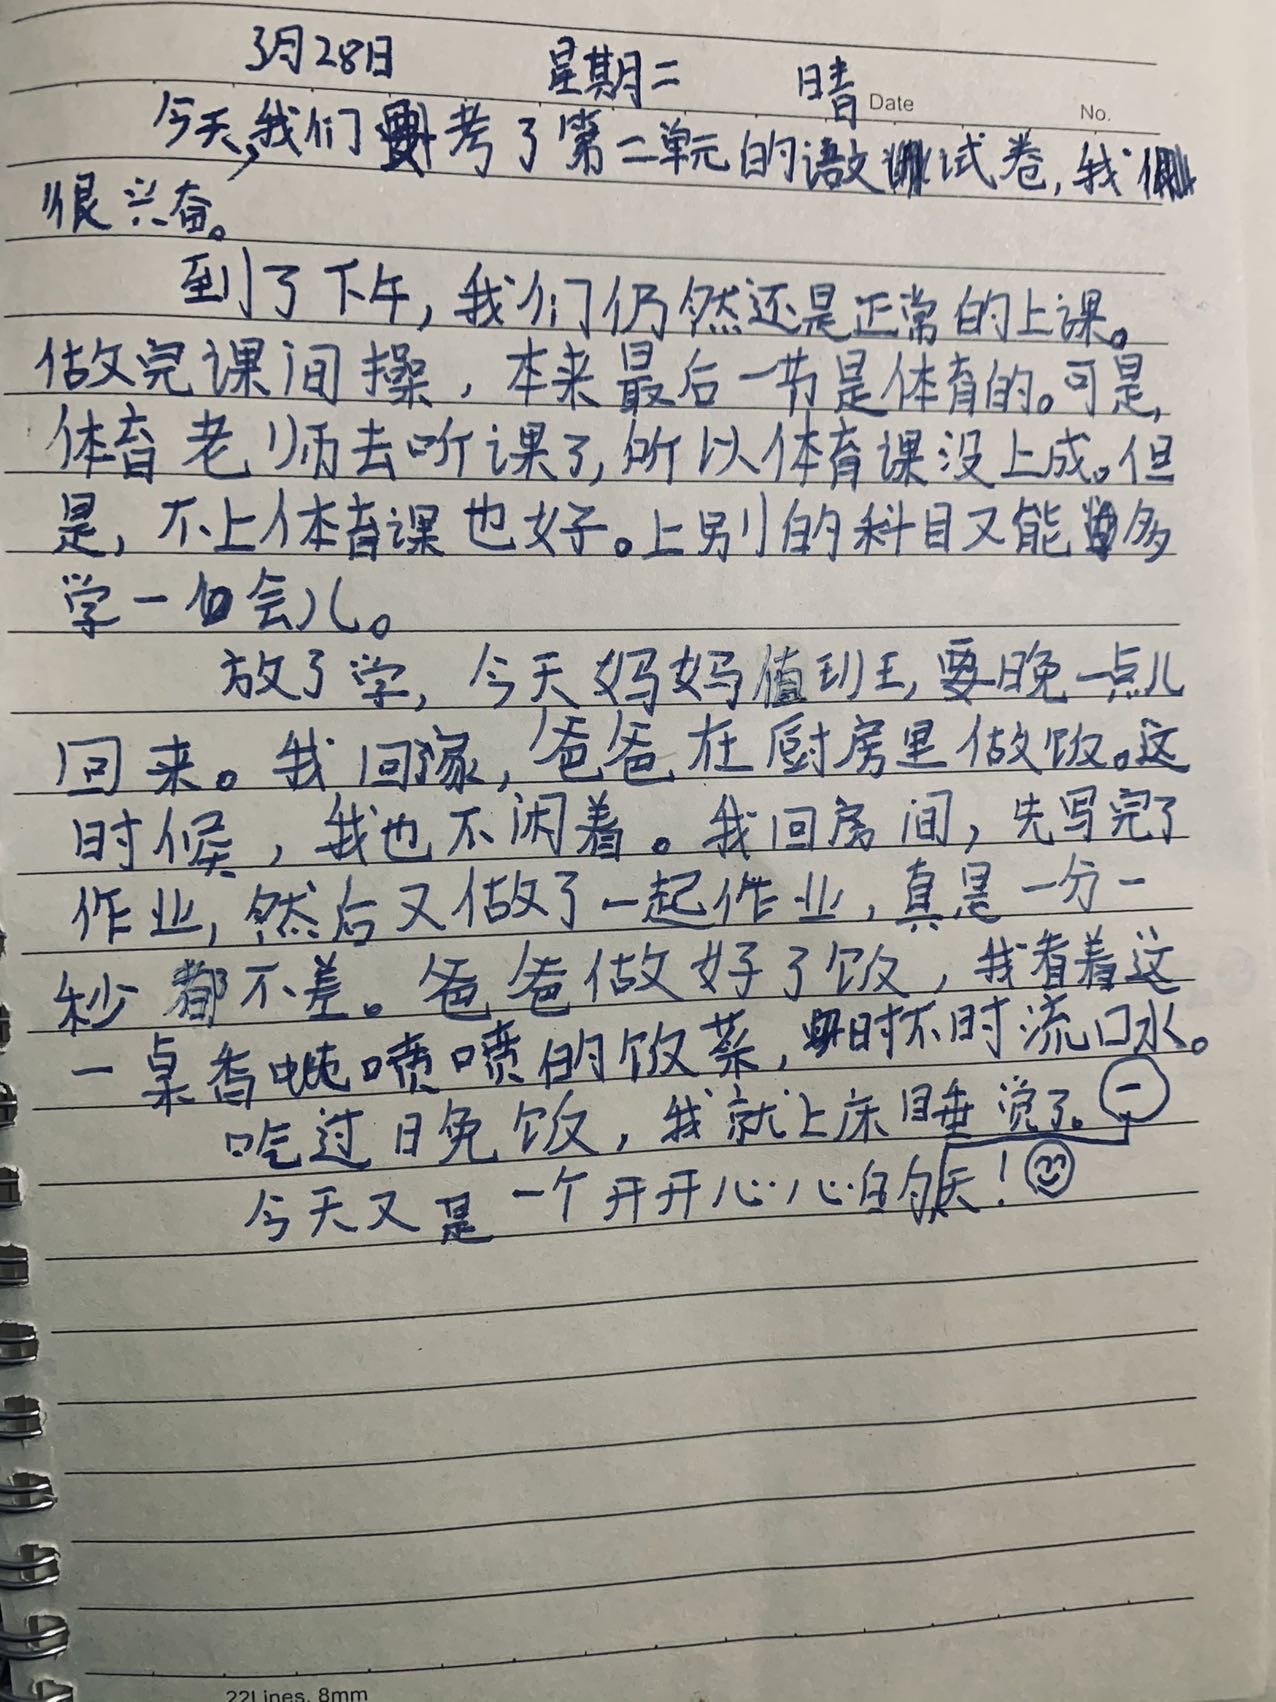 3月28日 星期二 晴
Date No.
今天,我们考了第二单元的语文试卷,我
很兴奋。
到了下午,我们仍然还是正常的上课。
做完课间操,本来最后一节是体育的。可是,
体育老师去听课了,所以体育课没上成。但
是,不上体育课也好。上别的科目又能多
学一会儿。
放了学,今天妈妈值班,要晚一点儿
回来。我回家,爸爸在厨房里做饭。这
时候,我也不闲着。我回房间,先写完了
作业,然后又做了一起作业,真是一分一
秒都不差。爸爸做好了饭,我看着这
一桌香喷喷的饭菜,时不时流口水。
吃过晚饭,我就上床睡觉了。
今天又是一个开开心心的一天!
22Lines. 8mm